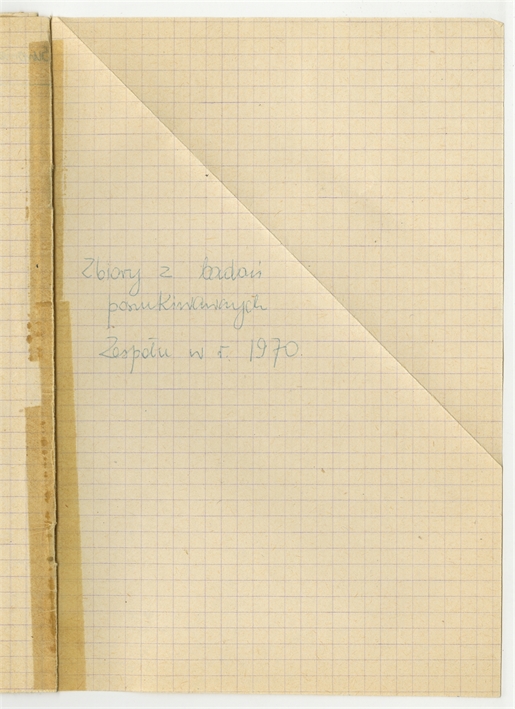 Zbiory z badań
poszukiwawczych
Zespołu w r. 1970.